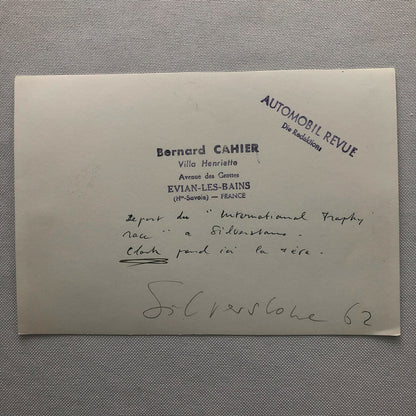 AUTOMOBIL REVUE
Die Redaktion
Bernard CAHIER
Villa Henriette
Avenue des Grottes
EVIAN-LES-BAINS
(Hte-Savoie) — FRANCE
Depart du "International Trophy
race" a Silverstone.
Clark prend ici la tête.
Silverstone 62